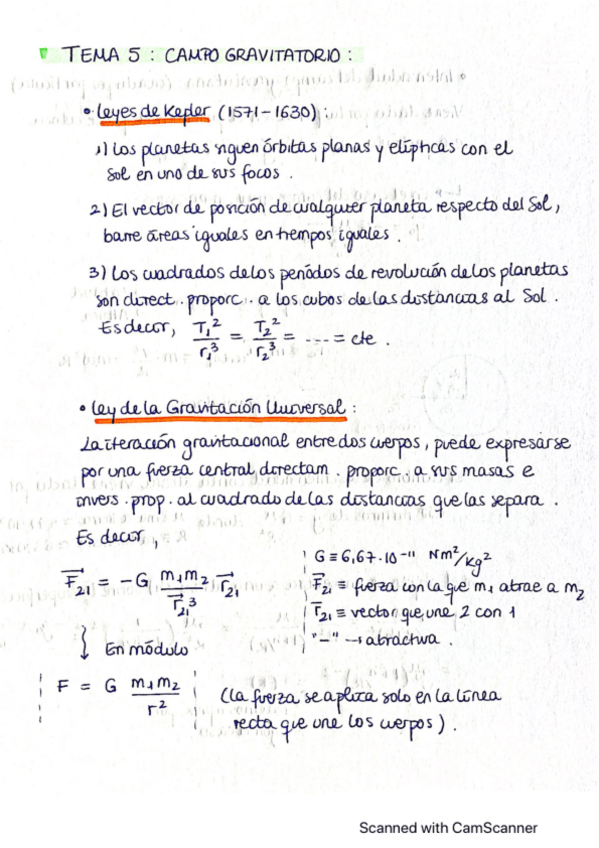 TEMA 5 : CAMPO GRAVITATORIO :
• Leyes de Kepler (1571-1630) :
1) Los planetas siguen órbitas planas y elípticas con el
Sol en uno de sus focos .
2) El vector de posición de cualquier planeta respecto del Sol,
barre áreas iguales en tiempos iguales .
3) Los cuadrados de los periódos de revolución de los planetas
son direct . proporc . a los cubos de las distancias al Sol .
Es decir, T₁²/r₁³ = T₂²/r₂³ = ---- = cte .
• Ley de la Gravitación Universal :
La iteración gravitacional entre dos cuerpos, puede expresarse
por una fuerza central, directam . proporc . a sus masas e
invers . prop . al cuadrado de las distancias que las separa .
Es decir ,
F⃗₂₁ = -G m₁m₂/r⃗₂₁³ r⃗₂₁
En módulo
F = G m₁m₂/r²
G ≡ 6,67·10⁻¹¹ Nm²/kg²
F⃗₂₁ ≡ fuerza con la que m₁ atrae a m₂
r⃗₂₁ ≡ vector que une 2 con 1
"-" → atractiva .
(La fuerza se aplica solo en la línea
recta que une los cuerpos) .
Scanned with CamScanner